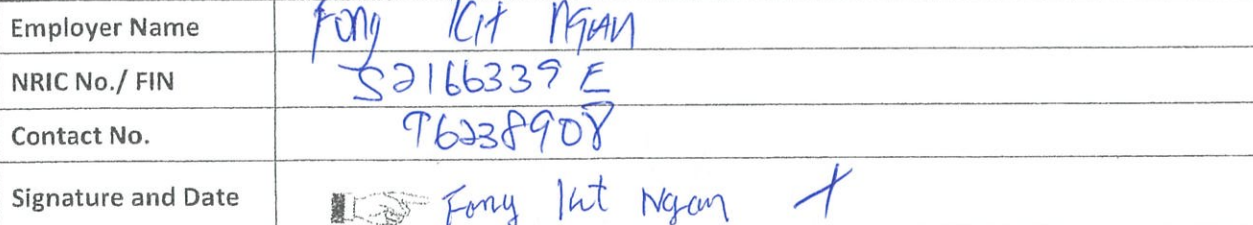 Employer Name Fong Kit Ngan
NRIC No./ FIN S2166339E
Contact No. 96238908
Signature and Date Fong Kit Ngan